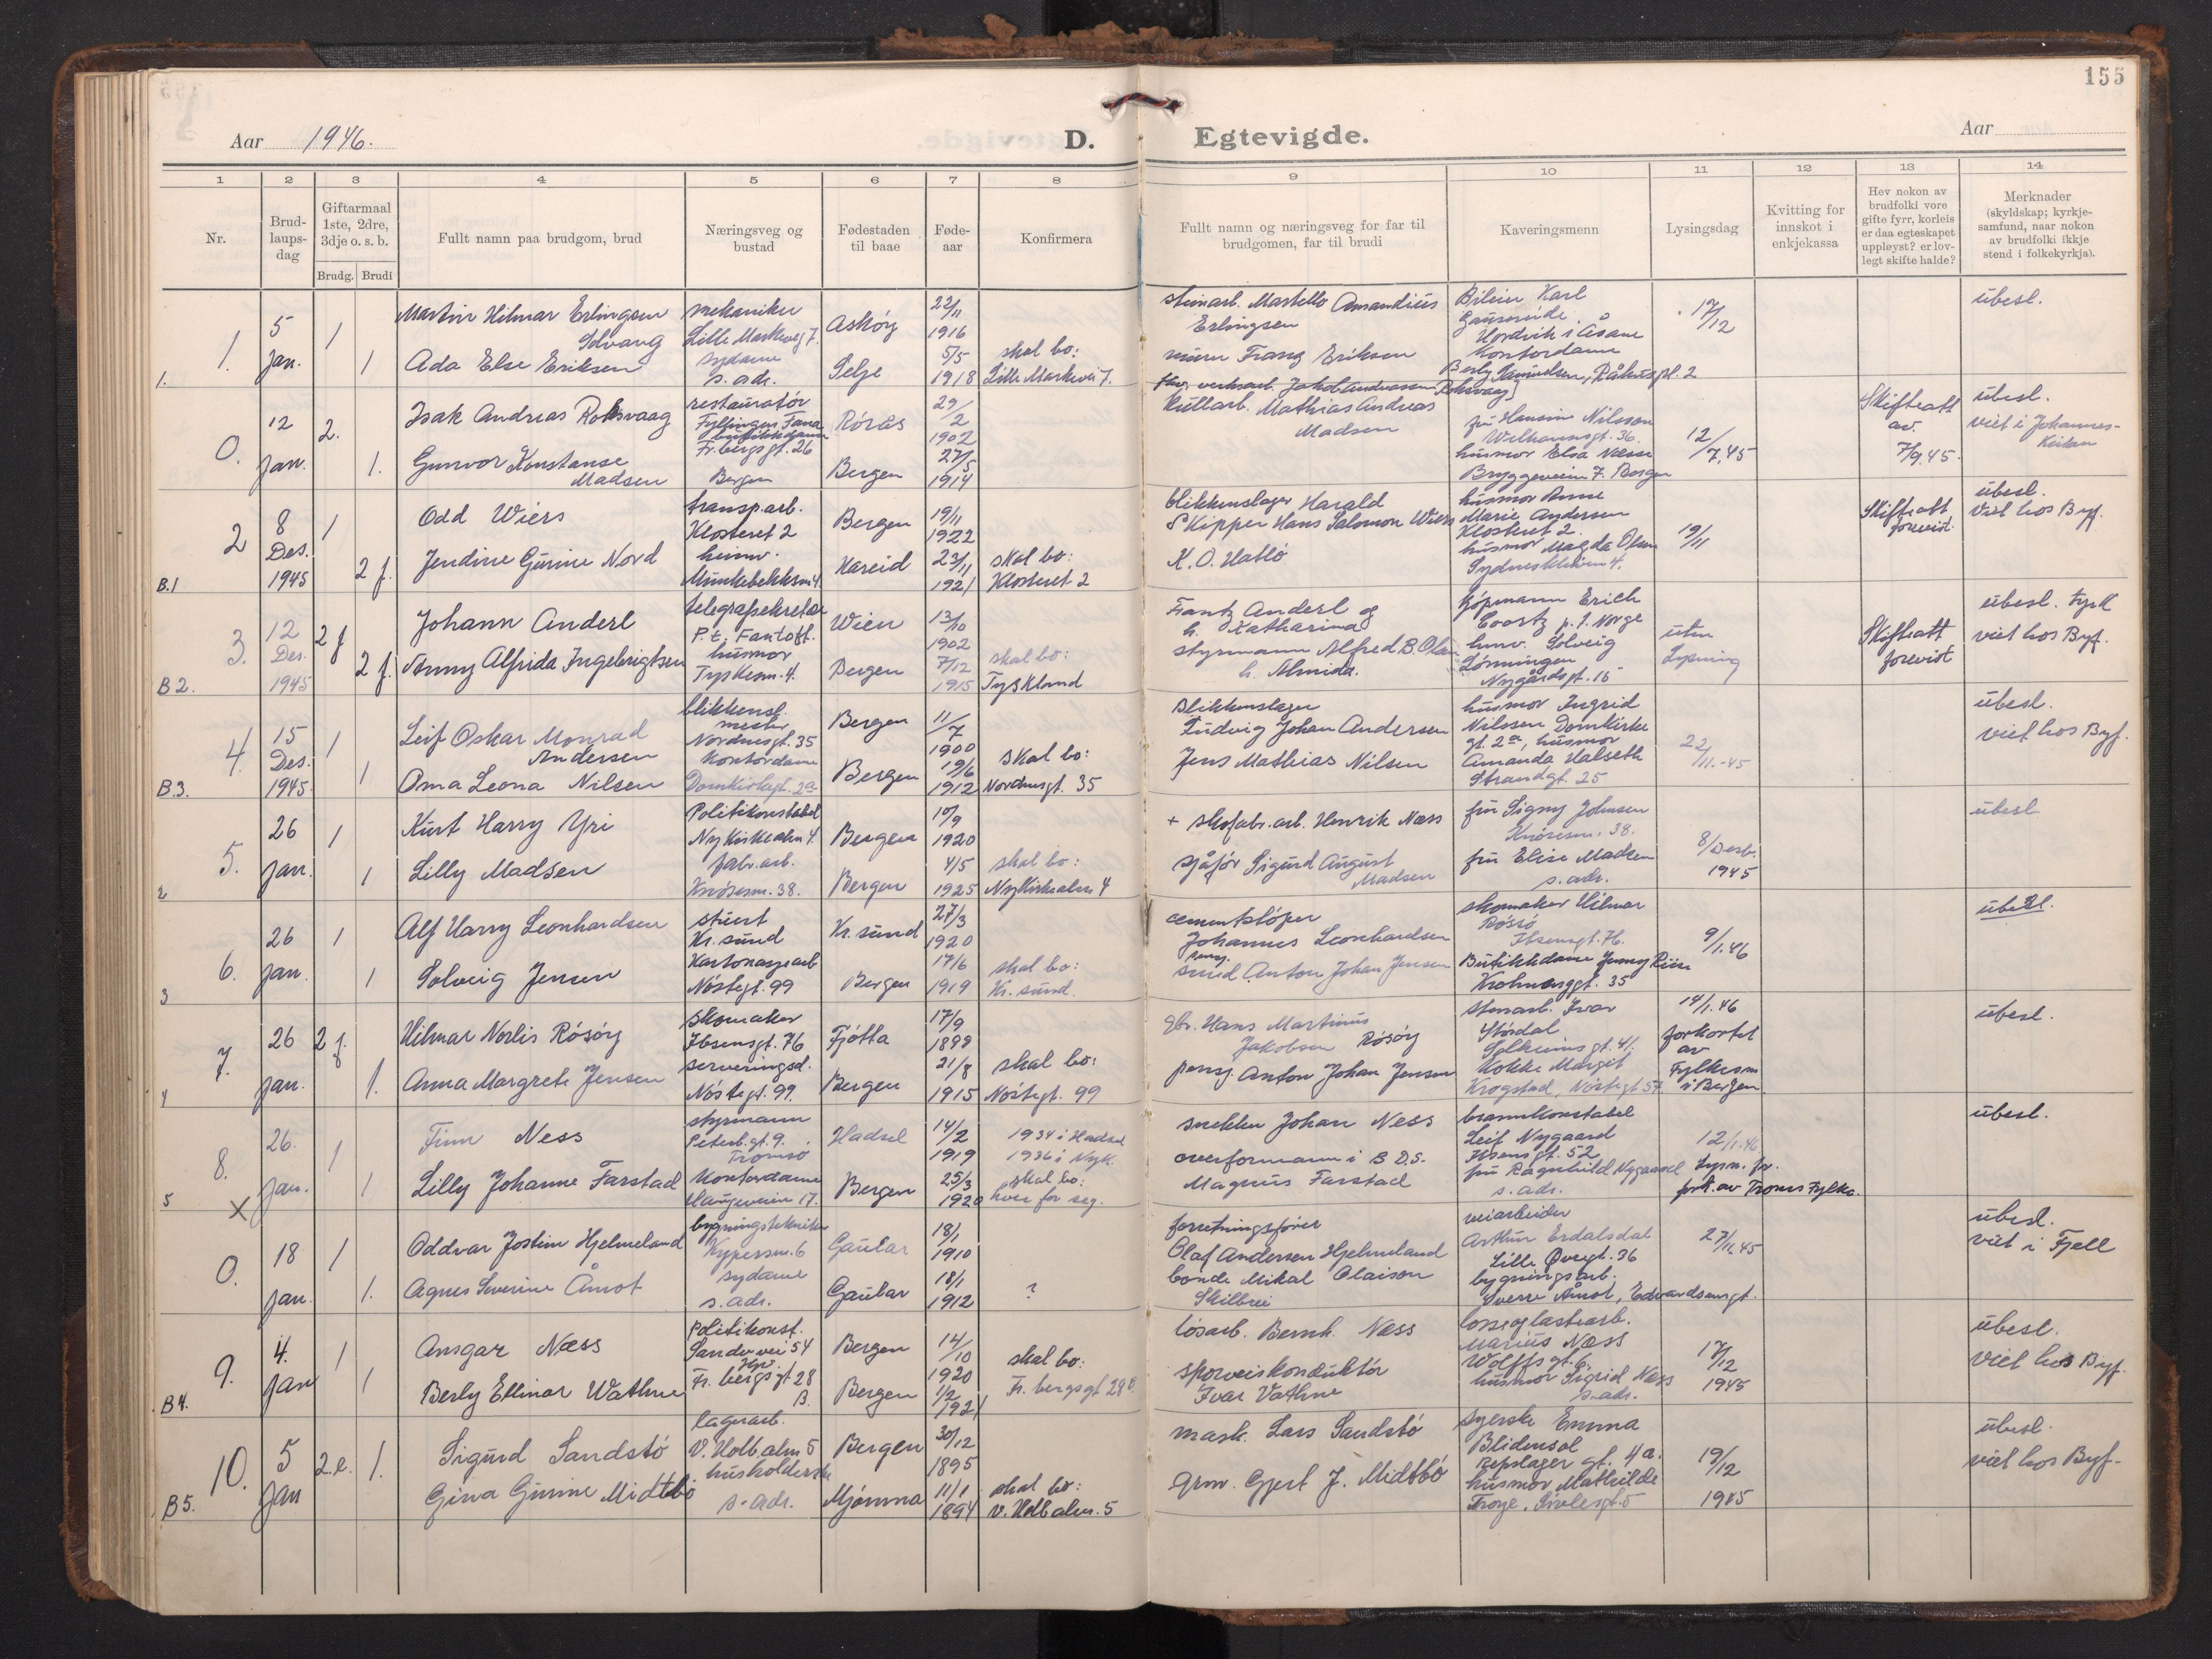 155
Aar 1946.
D. Egtevigde.
Aar
1 2 3 4 5 6 7 8 9 10 11 12 13 14
Nr.
Brud-
laups-
dag
Giftarmaal
1ste, 2dre,
3dje o. s. b.
Brudg. Brudi
Fullt namn paa brudgom, brud
Næringsveg og
bustad
Fødestaden
til baae
Føde-
aar
Konfirmera
Fullt namn og næringsveg for far til
brudgomen, far til brudi
Kaveringsmenn
Lysingsdag
Kvitting for
innskot i
enkjekassa
Hev nokon av
brudfolki vore
gifte fyrr, korleis
er daa egteskapet
uppløyst? er lov-
legt skifte halde?
Merknader
(skyldskap; kyrkje-
samfund, naar nokon
av brudfolki ikkje
stend i folkekyrkja).
1. 1. 5 Jan. 1 1
Martin Hilmar Erlingsen
Solvang
Ada Else Eriksen
mekaniker
Lille Markevej 7.
sydame
s. adr.
Askøy
Selje
22/11
1916
5/5
1918
skal bo:
Lille Markevei 7.
steinarb. Martello Amandius
Erlingsen
murer Franz Eriksen
Karl
Hordvik i Åsane
Kontordame
Rådhuspl. 2
17/12
ubesl.
0. 12 Jan. 2. 1.
Isak Andreas Roksvaag
Gunvor Konstanse
Madsen
restauratør
Fyllingen Fana
Fr. bergsgt. 26
Bergen
Rörås
Bergen
29/2
1902
27/5
1914
verksarb. Jakob Andreassen Roksvaag
kullarb. Mathias Andreas
Madsen
fru Hansine Nilsson
Welhavensgt. 36.
husmor Elsa Næsse
Bryggeveien 7. Bergen
12/7.45
Skifteatt
av
7/9.45.
ubesl.
viet i Johannes-
kirken
B.1 2 8 Des. 1945 1 2 f.
Odd Wiers
Jendine Gurine Nord
transp.arb.
Klosteret 2
heimv.
Bergen
Hareid
19/11
1922
23/11
1921
skal bo:
Klosteret 2
blikkenslager Harald
Skipper Hans Salomon Wiers
K. O. Hatlø
husmor Anne
Marie Andersen
Klosteret 2.
husmor Magda Olsen
19/11
Skifteatt
forevist.
ubesl.
Viet hos Byf.
B 2. 3. 12 Des. 1945 2 f 2 f.
Johann Anderl
Anny Alfrida Ingebrigtsen
telegrafsekretær
P.t. Fantoft.
husmor
Tyskesm. 4.
Wien
Bergen
13/10
1902
7/12
1915
skal bo:
Tyskland
Frantz Anderl og
h. Katharina
styrmann Alfred B. Olsen
h. Almida.
Kjøpmann Erich
p.t. Norge
Solveig
Lønningen
Nygårdsgt. 15
uten
Lysning
Skifteatt
forevist
ubesl.
viet hos Byf.
B.3. 4. 15 Des. 1945 1 1
Leif Oskar Monrad
Andersen
Oma Leona Nilsen
blikkensl.
mester
Nordnesgt. 35
Kontordame
Domkirkegt. 2a
Bergen
Bergen
11/7
1900
19/6
1912
skal bo:
Nordnesgt. 35
Blikkenslager
Ludvig Johan Andersen
Jens Mathias Nilsen
husmor Ingrid
Nilssen Domkirke
gt. 2a, husmor
Amanda Halseth
Strandgt. 25
22/11.-45
ubesl.
viet hos Byf.
2 5. 26 Jan. 1 1
Kurt Harry Yri
Lilly Madsen
Politikonstabel
Ny Kirkealm. 4.
fabr.arb.
Knøsesm. 38.
Bergen
Bergen
10/9
1920
4/5
1925
skal bo:
Ny Kirkealm 4
+ skofabr.arb. Henrik Næss
sjåfør Sigurd August
Madsen
fru Signy Johnsen
Knøsesm. 38.
fru Elise Madsen
s. adr.
8/Desb.
1945
ubesl
3 6. 26 Jan. 1 1
Alf Harry Leonhardsen
Solveig Jensen
stuert
Kr. sund
Kartonasjearb
Nøstegt. 99
Kr. sund
Bergen
27/3
1920
17/6
1919
skal bo:
Kr. sund.
cementstøper
Johannes Leonhardsen
pensj.
smed Anton Johan Jensen
skomaker Hilmar
Røsø
Ibsensgt. 76.
Butikkdame Jenny Riise
Krohnenggt. 35
9/1.46
ubesl.
4 7. 26 Jan. 2 f. 1.
Hilmar Norlis Røsøy
Anna Margrete Jensen
skomaker
Ibsensgt. 76
serveringsd.
Nøstegt. 99.
Tjøtta
Bergen
17/9
1899
21/8
1915
skal bo:
Nøstegt. 99
Gbr. Hans Martinus
Jakobsen Røsøy
pensj. Anton Johan Jensen
stenarb. Ivar
Størdal
Solheimsgt. 41.
Kokke Margit
Krogstad, Nøstegt 57
14/1.46
forkortet
av
Fylkesm
i Bergen
ubesl.
5 8. X 26. Jan. 1 1
Finn Ness
Lilly Johanne Farstad
styrmann
Peterb.gt. 9.
Tromsø
Kontordame
Haugeveien 17.
Hadsel
Bergen
14/2
1919
25/3
1920
1934 i Hadsel
1936 i Nyk.
skal bo:
hver for seg.
snekker Johan Ness
overformann i B.D.S.
Magnus Farstad
brannkonstabel
Leif Nygaard
Ibsensgt. 52
fru Ragnhild Nygaard
s. adr.
12/1.46
Lysn. for.
fork. av Troms Fylke.
ubesl.
0. 18 Jan. 1 1.
Oddvar Jostein Hjelmeland
Agnes Severine Åmot
bygningstekniker
Kypersm. 6
sydame
s. adr.
Gaular
Gaular
18/1
1910
18/1
1912
?
forretningsfører
Olaf Andersen Hjelmeland
bonde Mikal Olaison
Skilbrei
veiarbeider
Arthur Erdalsdal
Lille Øvregt. 36
bygningsarb.
Sverre Åmot, Edvardsensgt.
27/11.45
ubesl.
viet i Fjell
B4. 9. 4. Jan 1 1
Ansgar Næss
Berly Ellinor Wathne
Politikonst.
Sandviksvei 54
Hpv.
Fr. bergsgt 28
B.
Bergen
Bergen
14/10
1920
1/2
1921
skal bo:
Fr. bergsgt 28 B.
løsarb. Bernh. Næss
sporveiskonduktør
Ivar Vathne
losse og lastearb.
Marius Næss
Wolffsgt. 6.
husmor Sigrid Næss
s. adr.
17/12
1945
ubesl.
viet hos Byf.
B5. 10. 5 Jan 2.e. 1.
Sigurd Sandstø
Gina Gurine Midtbø
lagerarb.
V. Holb.alm 5
husholderske
s. adr.
Bergen
Mjømna
30/12
1895
11/1
1894
skal bo:
V. Holb.alm. 5
mask. Lars Sandstø
Grm. Gjert J. Midtbø
syerske Emma
Blidensol
Repslager gt. 4a.
husmor Mathilde
Troye, Sivlesgt. 5
19/12
1945
ubesl.
viet hos Byf.